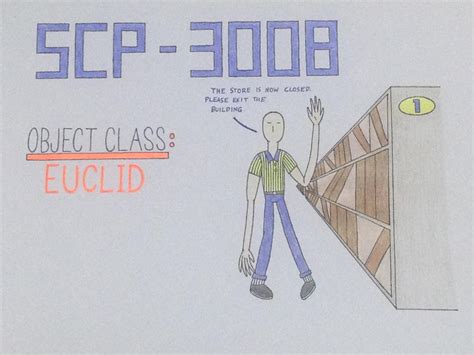 SCP-3008
THE STORE IS NOW CLOSED.
PLEASE EXIT THE
BUILDING.
1
OBJECT CLASS:
EUCLID